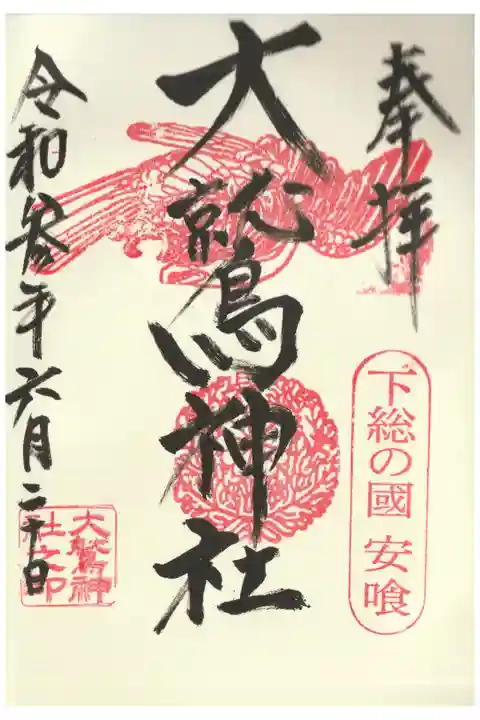 奉拝
下総の國 安喰
大鷲神社
令和参年六月二十日
大鷲神
社之印